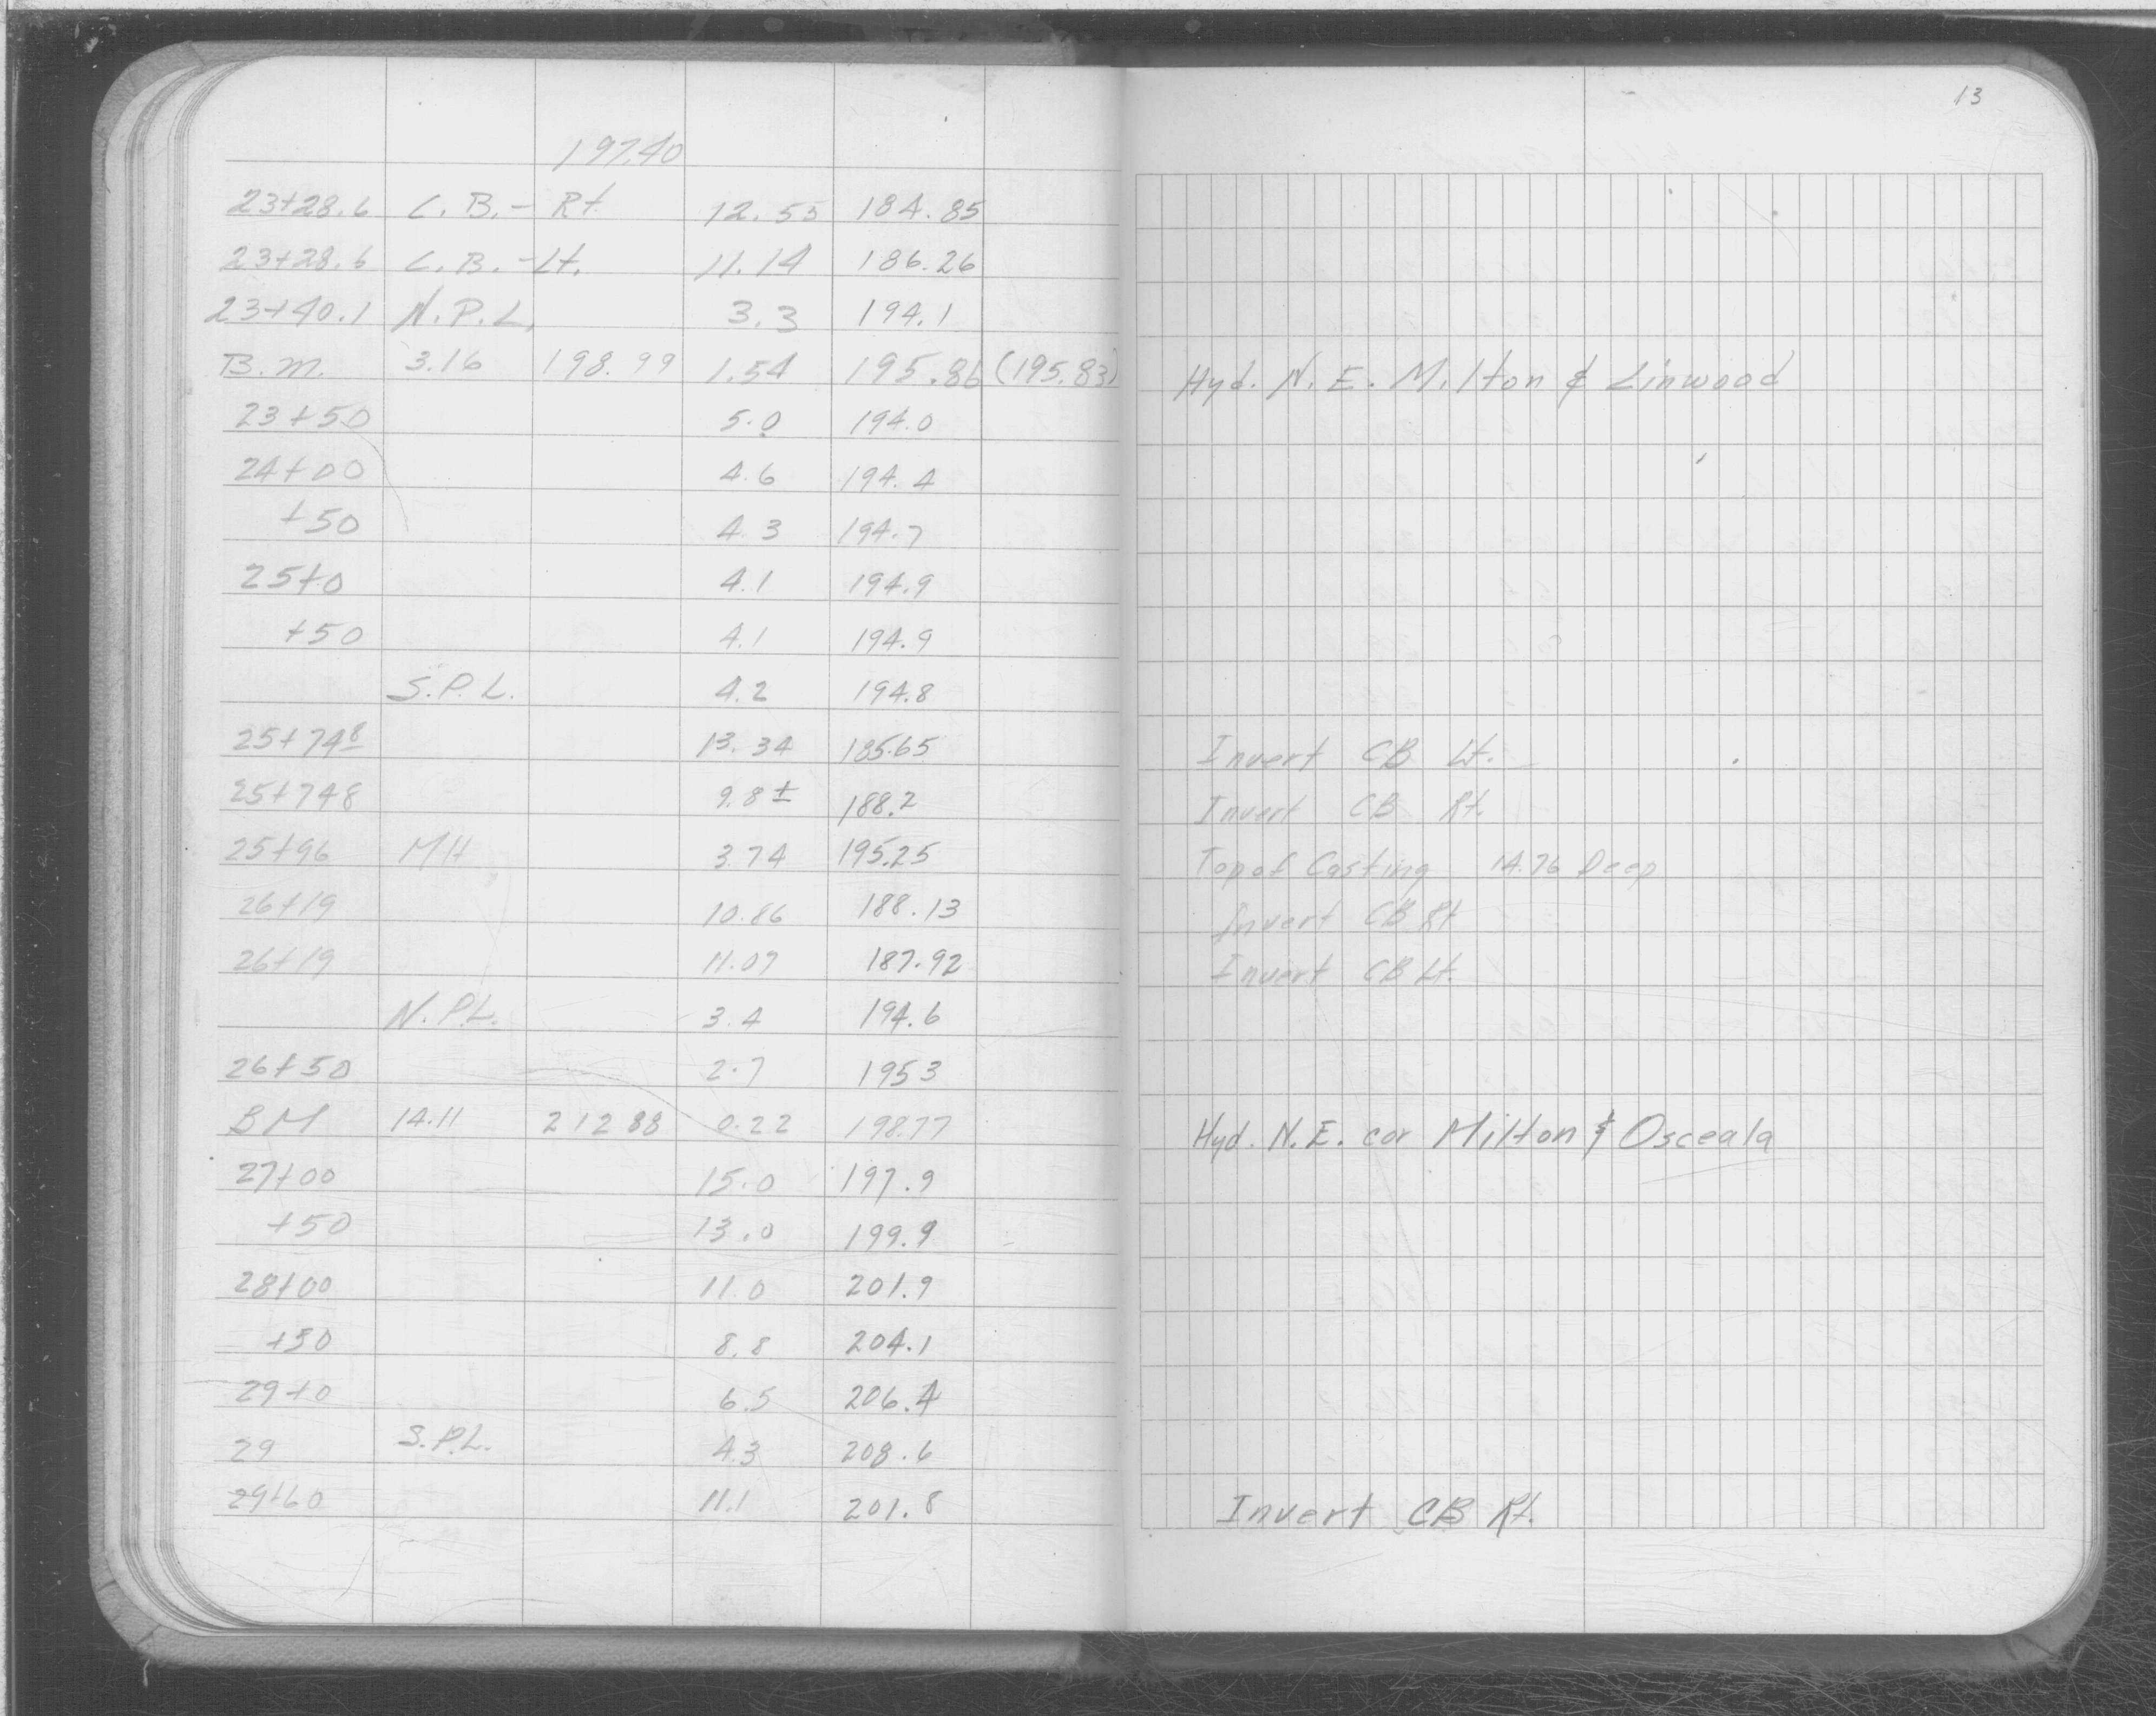 13
197.40
23+28.6 C.B.- Rt 12.55 184.85
23+28.6 C.B.-Lt. 11.14 186.26
23+40.1 N.P.L. 3.3 194.1
B.M. 3.16 198.99 1.54 195.86 (195.83) Hyd. N.E. Milton & Linwood
23+50 5.0 194.0
24+00 4.6 194.4
+50 4.3 194.7
25+0 4.1 194.9
+50 4.1 194.9
S.P.L. 4.2 194.8
25+748 13.34 185.65 Invert CB Lt.
25+748 9.8± 188.2 Invert CB Rt.
25+96 MH 3.74 195.25 Top of Casting 14.76 Deep
26+19 10.86 188.13 Invert CB Rt
26+19 11.07 187.92 Invert CB Lt.
N.P.L. 3.4 194.6
26+50 2.7 195 3
BM 14.11 212 88 0.22 198.77 Hyd. N.E. cor Milton & Osceala
27+00 15.0 197.9
+50 13.0 199.9
28+00 11.0 201.9
+50 8.8 204.1
29+0 6.5 206.4
29 S.P.L. 4.3 208.6
29+60 11.1 201.8 Invert CB Rt.